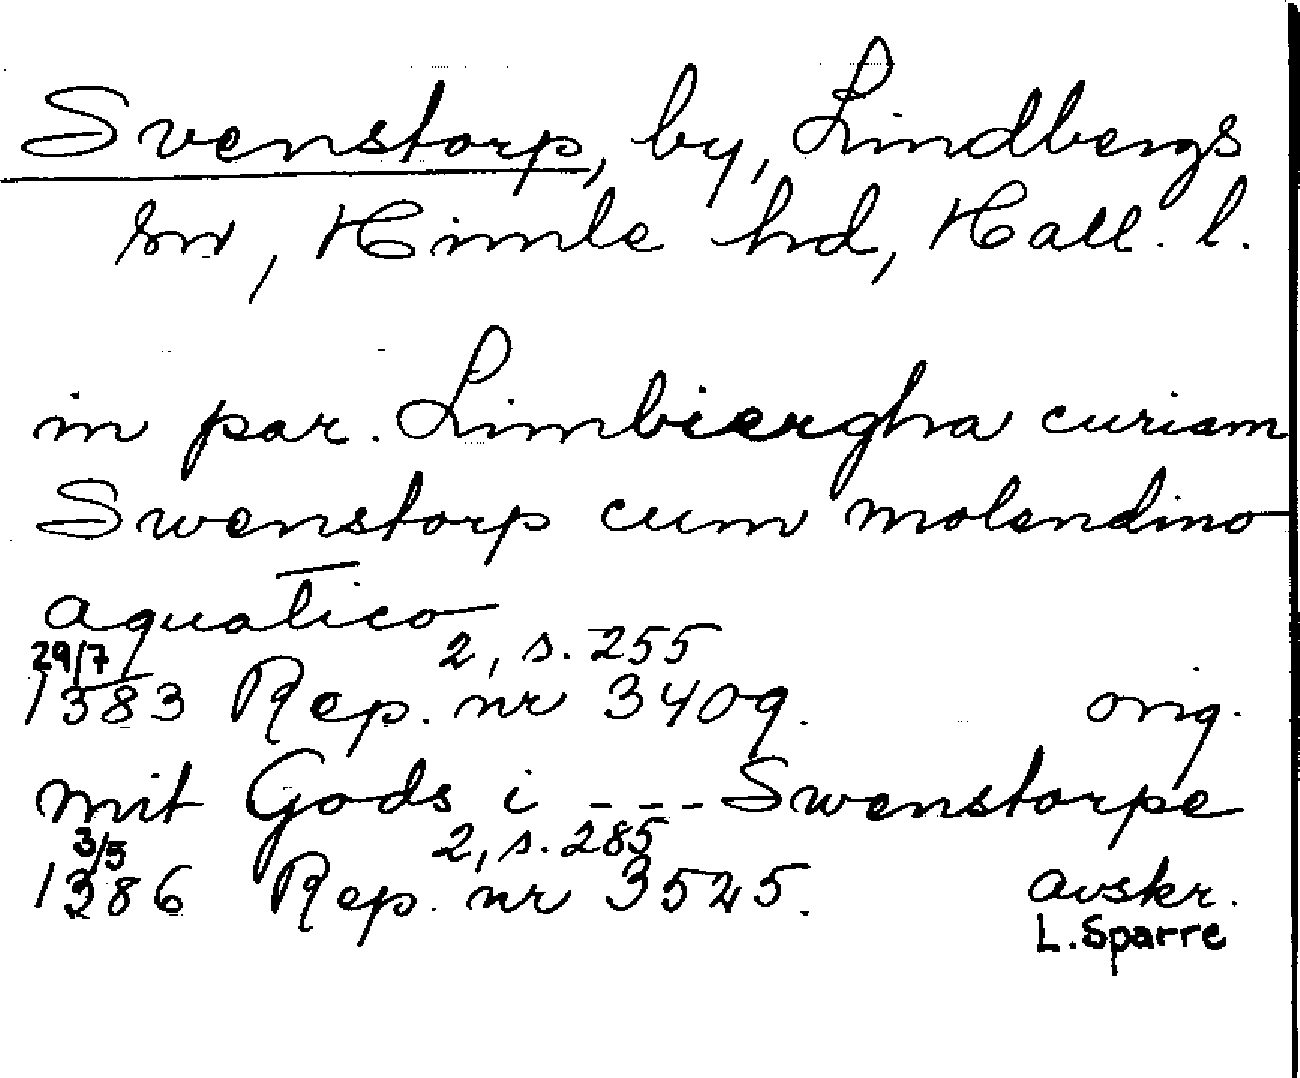 Svenstorp, by, Lindbergs
sn, Himle hd, Hall. l.
in par. Limbiergha curiam
Swenstorp cum molendino
aquatico
29/7 2, s. 255
1383 Rep. nr 3409. orig.
mit Gods i --- Swenstorpe
3/5 2, s. 285
1386 Rep. nr 3525. avskr.
L. Sparre